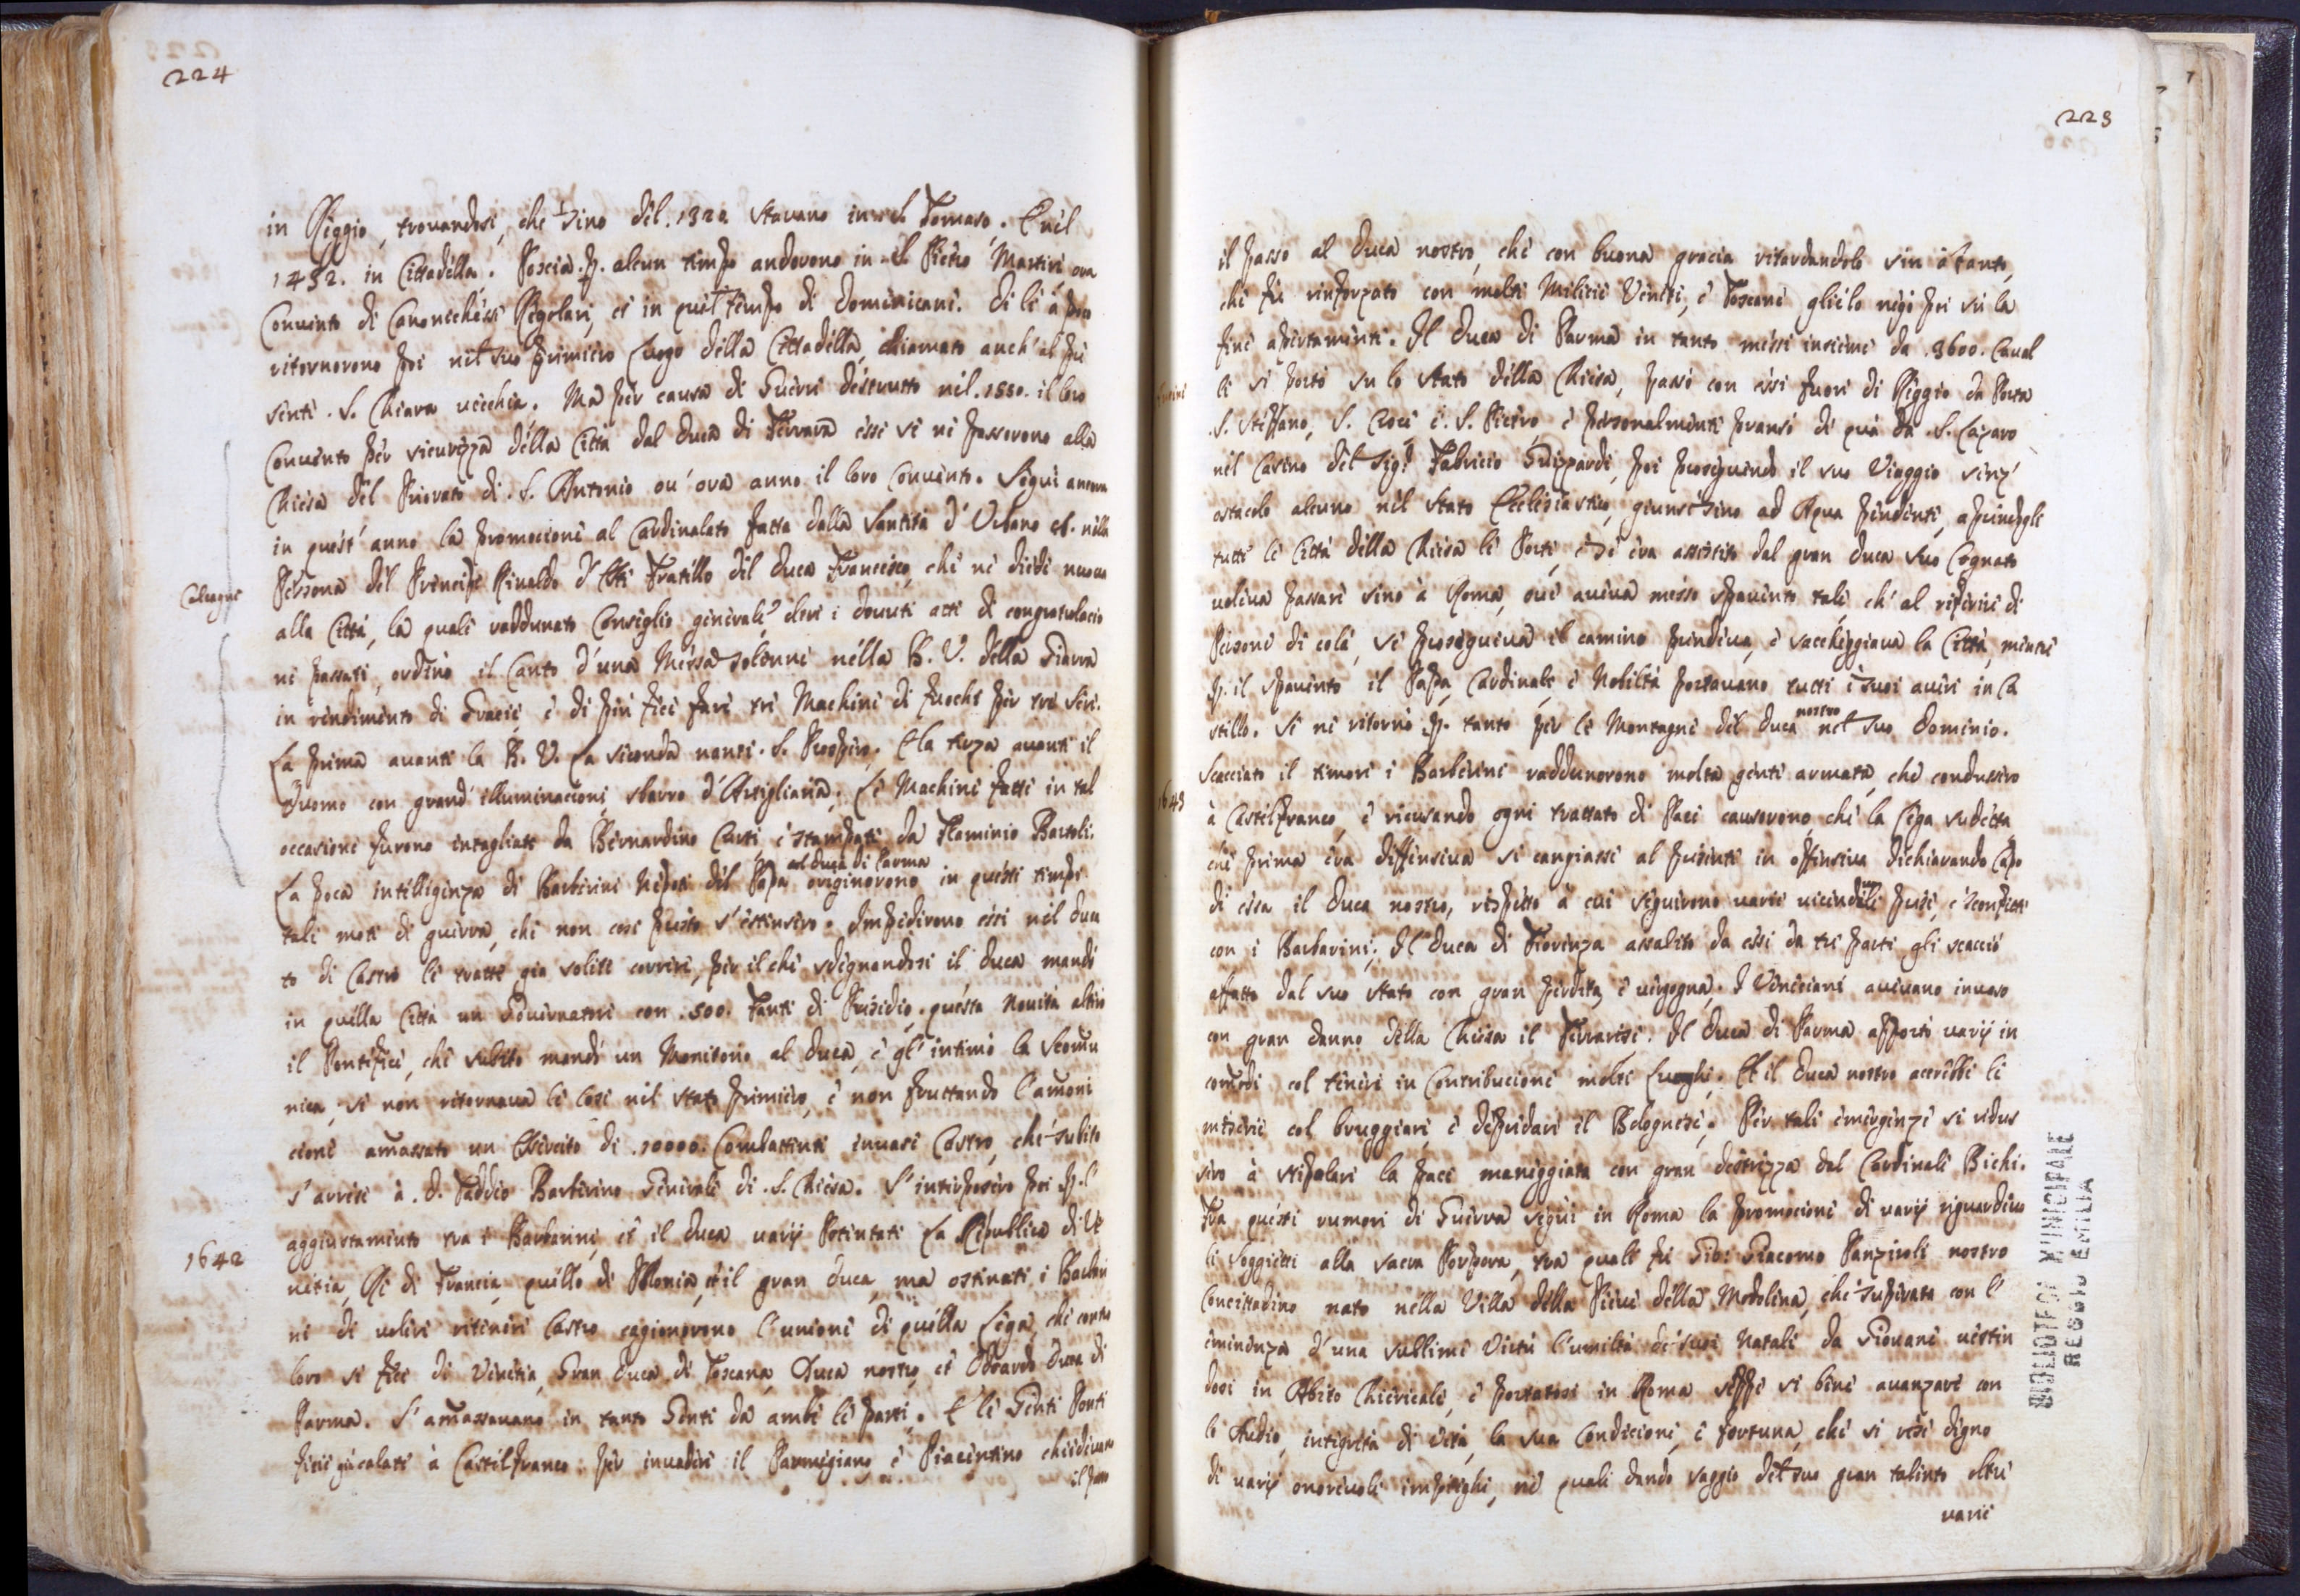 224
in Reggio, trovandosi, che sino del. 1320 stavano in S. Tomaso. E nel
1452. in Cittadella. Poscia p. alcun tempo andorono in S. Pietro Martire ora
Convento di Canonichesse Regolari, et in quel tempo di Dominicani. Di li à poco
ritornorono poi nel suo primiero luogo della Cittadella, chiamato anch'al pre
sente. S. Chiara vecchia. Ma per causa di Guerre destrutto nel. 1550. il loro
Convento per sicurezza della Città dal Duca di Ferrara essi se ne passorono alla
Chiesa del Priorato di. S. Antonio ov'ora anno il loro Convento. Seguì ancora
in quest'anno la promocione al Cardinalato fatta dalla Santità d'Urbano nella
Calcagni
Persona del Principe Rinaldo d'Este Fratello del Duca Francesco, che ne diede nuova
alla Città, la quale raddunato Consiglio generale oltre i dovuti atti di congratulacio
ne passati, ordinò il Canto d'una Messa solenne nella B. V. della Giarra
in rendimento di Gracie, e di più fece fare tre Machine di fuochi per tre sere.
La prima avanti la B. V. La seconda nanti. S. Prospero. E la terza avanti il
Duomo con grand'illuminacione, sbarro d'Artiglieria. Le Machine fatte in tal
occasione furono intagliate da Bernardino Curti, e stampate da Flaminio Bartoli.
La poca intelligenza di Barberini Nepoti del Papa al Duca di Parma originorono in questi tempi
tali moti di guerra, che non così presto s'estinsero. Impedirono essi nel Duca
to di Castro le tratte già solite correre, per il che sdegnandosi il Duca mandò
in quella Città un Governatore con. 500. Fanti di Presidio. questa Novità alterò
il Pontefice, che subito mandò un Monitorio al Duca, e gl'intimò la Scomu
nica, se non ritornava le cose nel stato primiero, e non fruttando l'amoni
cione amassato un Essercito di. 10000. Combattenti invase Castro, che subito
s'arrese à. D. Taddeo Barberino Generale di. S. Chiesa. S'interposero poi p. l'
1642
aggiustamento tra i Barbarini, et il Duca varij Potentati La Republica di Ve
netia, Re di Francia, quello di Polonia, et il gran Duca, ma ostinati i Barbari
ni di volere ritenere Castro cagionorono l'unione di quella Lega, che contro
loro si fece di Venetia, Gran Duca di Toscana, Duca nostro, et Odoardo Duca di
Parma. S'amassavano in tanto Gente da ambe le parti. E le Gente Ponti
ficie già calate à Castelfranco per invadere il Parmigiano, e Piacentino chiedevano
il passo
225
il passo al Duca nostro, che con buona gracia ritardandolo sin à tanto,
che fù rinforzato con molte Milicie Venete, e Toscane glielo negò poi su la
fine apertamente. Il Duca di Parma in tanto messe insieme da. 3600. Caval
li si portò su lo Stato della Chiesa, passò con essi fuori di Reggio da Porta
S. Steffano, S. Croce e. S. Pietro e personalmente pransò di quà da. S. Lazaro
nel Casino del Sig.r Fabricio Guizzardi, poi proseguendo il suo Viaggio senz'
ostacolo alcuno nel Stato Ecclesiastico, giunse sino ad Aqua pendente, aprendogli
tutte le Città della Chiesa le Porte, e se era assistito dal gran Duca suo Cognato
voleva passare sino à Roma, ove aveva messo spavento tale, ch'al riferire di
Persone di colà, se proseguiva il camino prendeva, e saccheggiava la Città, mentre
p. il spavento il Papa, Cardinali, e Nobiltà portavano tutti i suoi averi in Ca
stello. Se ne ritornò p. tanto per le Montagne del Duca nostro nel suo Dominio.
Scacciato il timore i Barberini raddunorono molta gente armata, che condussero
1643
à Castelfranco, e ricusando ogni trattato di Pace causorono, che la Lega sudetta
che prima era diffensiva si cangiasse al presente in offensiva dichiarando Capo
di essa il Duca nostro, rispetto à cui seguirono varie vicendevoli prese, e sconfitte
con i Barbarini. Il Duca di Fiorenza assalito da essi da tre parti gli scacciò
affatto dal suo stato con gran perdita, e vergogna. I Veneciani avevano invaso
con gran danno della Chiesa il Ferrarese. Il Duca di Parma apportò varij in
comodi col tenere in Contribucione molti Luoghi. Et il Duca nostro acrebbe le
miserie col bruggiare, e depredare il Bolognese. Per tali emergenze si ridus
sero à stipolare la pace maneggiata con gran destrezza dal Cardinale Bichi.
Tra questi rumori di Guerra seguì in Roma la promocione di varij riguardevo
li Soggietti alla sacra Porpora, tra quali fù Gio: Giacomo Panziroli nostro
Concittadino nato nella Villa della Pieve della Modolena, che superata con l'
eminenza d'una sublime Virtù l'umiltà de suoi Natali da Giovane vestin
dosi in Abito Chiericale, e portatosi in Roma seppe si bene avanzare con
lo studio, integrità di vita, la sua Condicione, e fortuna, che si rese degno
di varij onorevoli impieghi, ne quali dando saggio del suo gran talento oltre
varie
BIBLIOTECA MUNICIPALE
REGGIO EMILIA